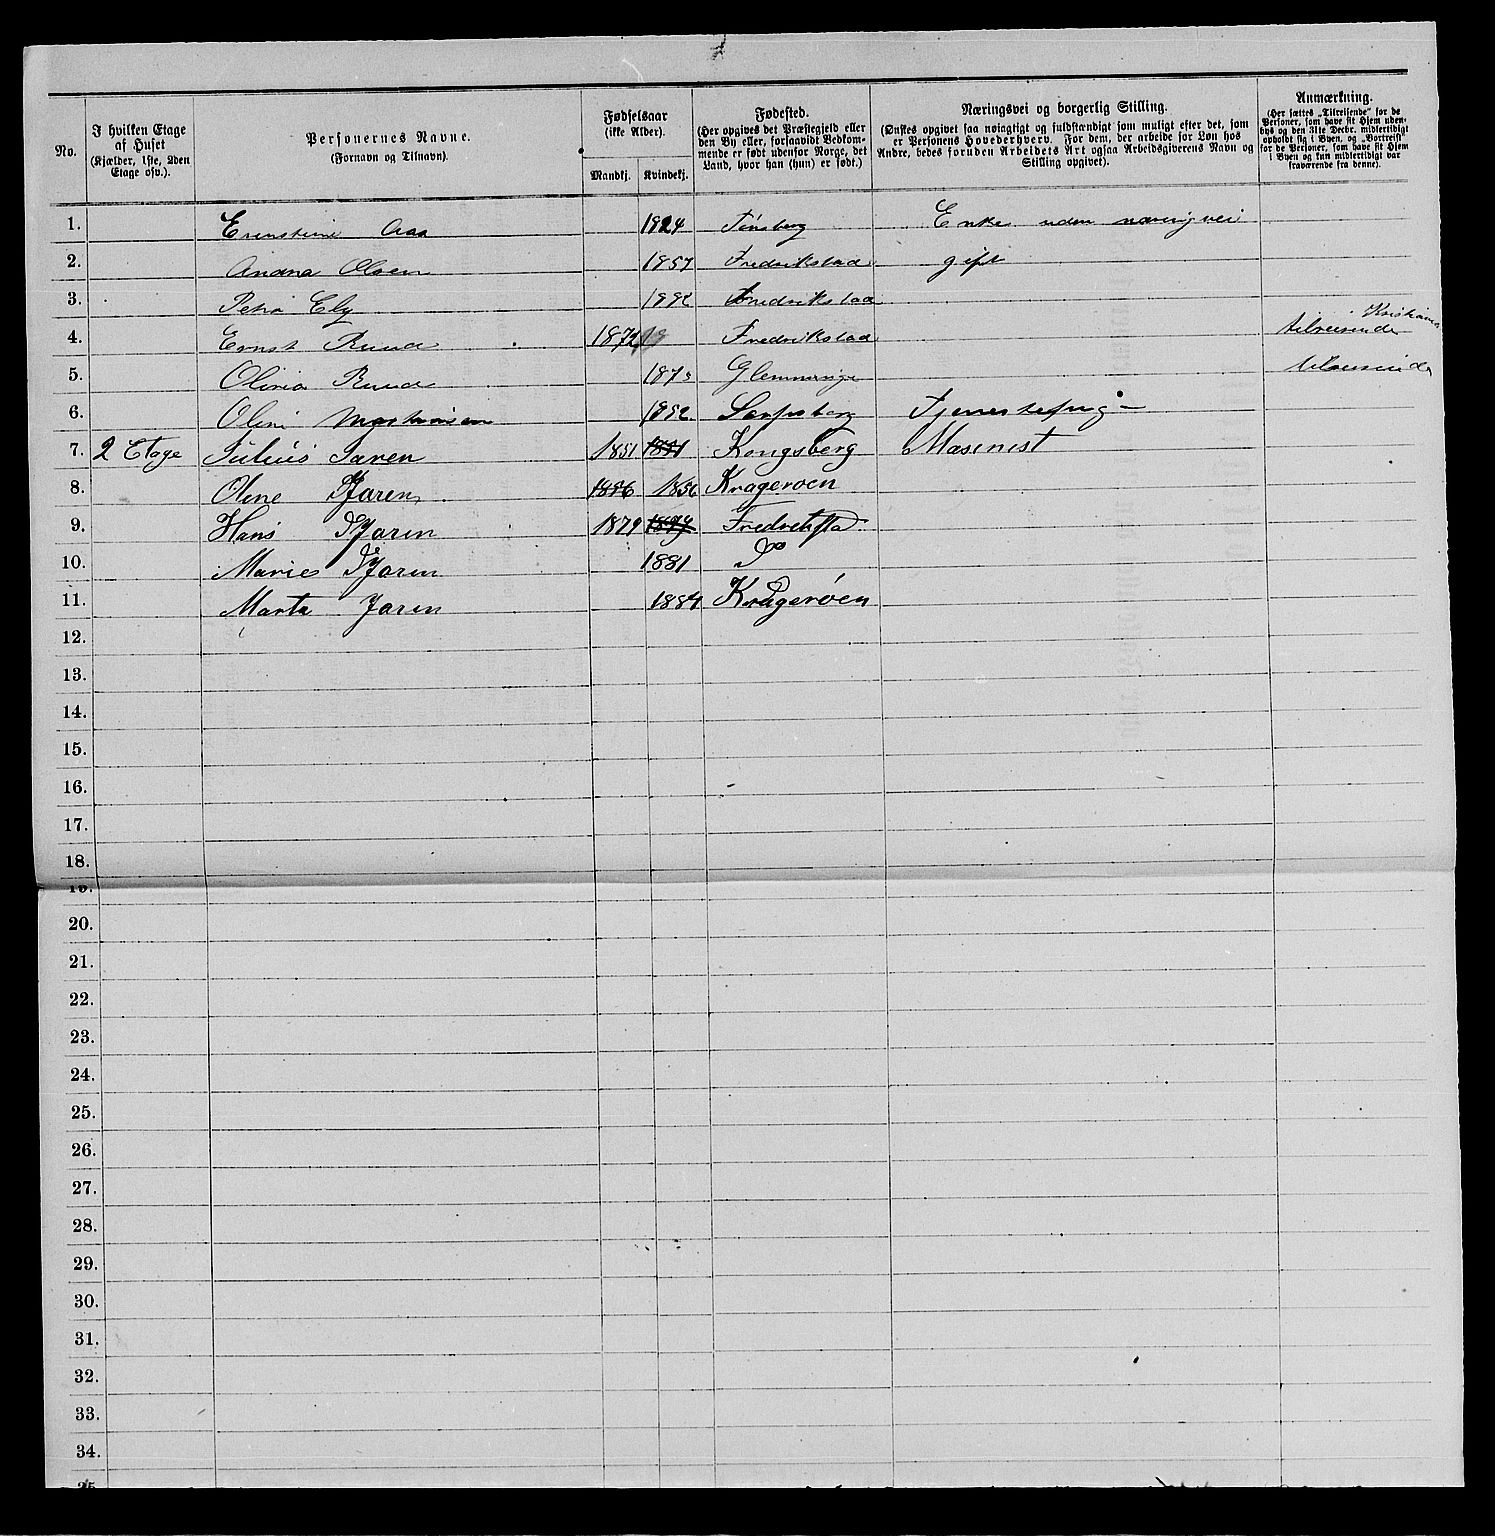 No.
I hvilken Etage
af Huset
(Kjælder, 1ste, 2den
Etage osv.).
Personernes Navne.
(Fornavn og Tilnavn).
Fødselsaar
(ikke Alder).
Mandkj. Kvindekj.
Fødested.
(Her opgives det Præstegjeld eller
den By eller, forsaavidt Vedkom-
mende er født udenfor Norge, det
Land, hvor han (hun) er født.)
Næringsvei og borgerlig Stilling.
(Ønskes opgivet saa nøiagtigt og fuldstændigt som muligt efter det, som
er Personens Hovederhverv. For dem, der arbeide for Løn hos
Andre, bedes foruden Arbeidets Art ogsaa Arbeidsgiverens Navn og
Stilling opgivet).
Anmærkning.
(Her sættes „Tilreisende" for de
Personer, som have sit Hjem uden-
bys og den 31te Decbr. midlertidigt
opholdt sig i Byen, og „Bortreist"
for de Personer, som have sit Hjem
i Byen og kun midlertidigt var
fraværende fra denne).
1. Ernstine Aas 1824 Tönsberg Enke uden næringvei
2. Andna Olsen 1857 Fredrikstad gift
3. Petra Ely 1892 Fredrikstad
4. Ernst Ruud 1872 Fredrikstad tilreisende Kristiania
5. Olivia Ruud 1873 Glemminge tilreisende
6. Olin Martinsen 1852 Sarpsborg
7. 2 Etage Julius Jaren 1851 1851 Kongsberg Masinist
8. Oline Jaren 1856 1856 Krageroen
9. Hans Jaren 1879 Fredrekstad
10. Marie Jaren 1881 Do
11. Marta Jaren 1884 Krageröen
12.
13.
14.
15.
16.
17.
18.
19.
20.
21.
22.
23.
24.
25.
26.
27.
28.
29.
30.
31.
32.
33.
34.
35